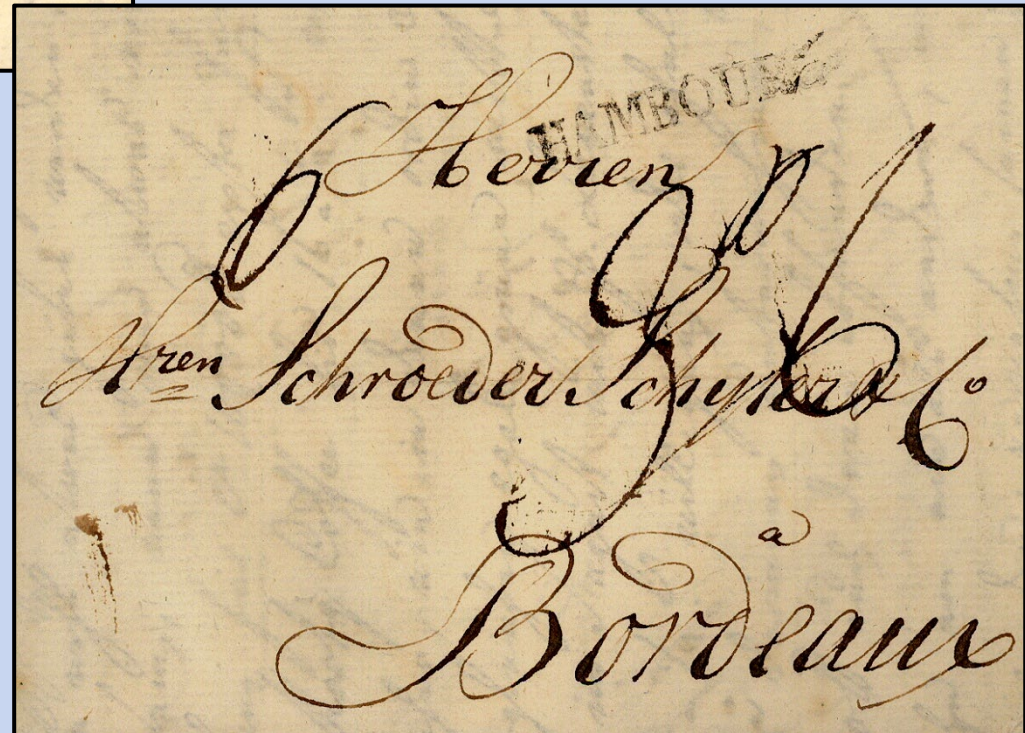 HAMBOURG
Herren
Hren Schroeder Schyler & Co
36
à
Bordeaux